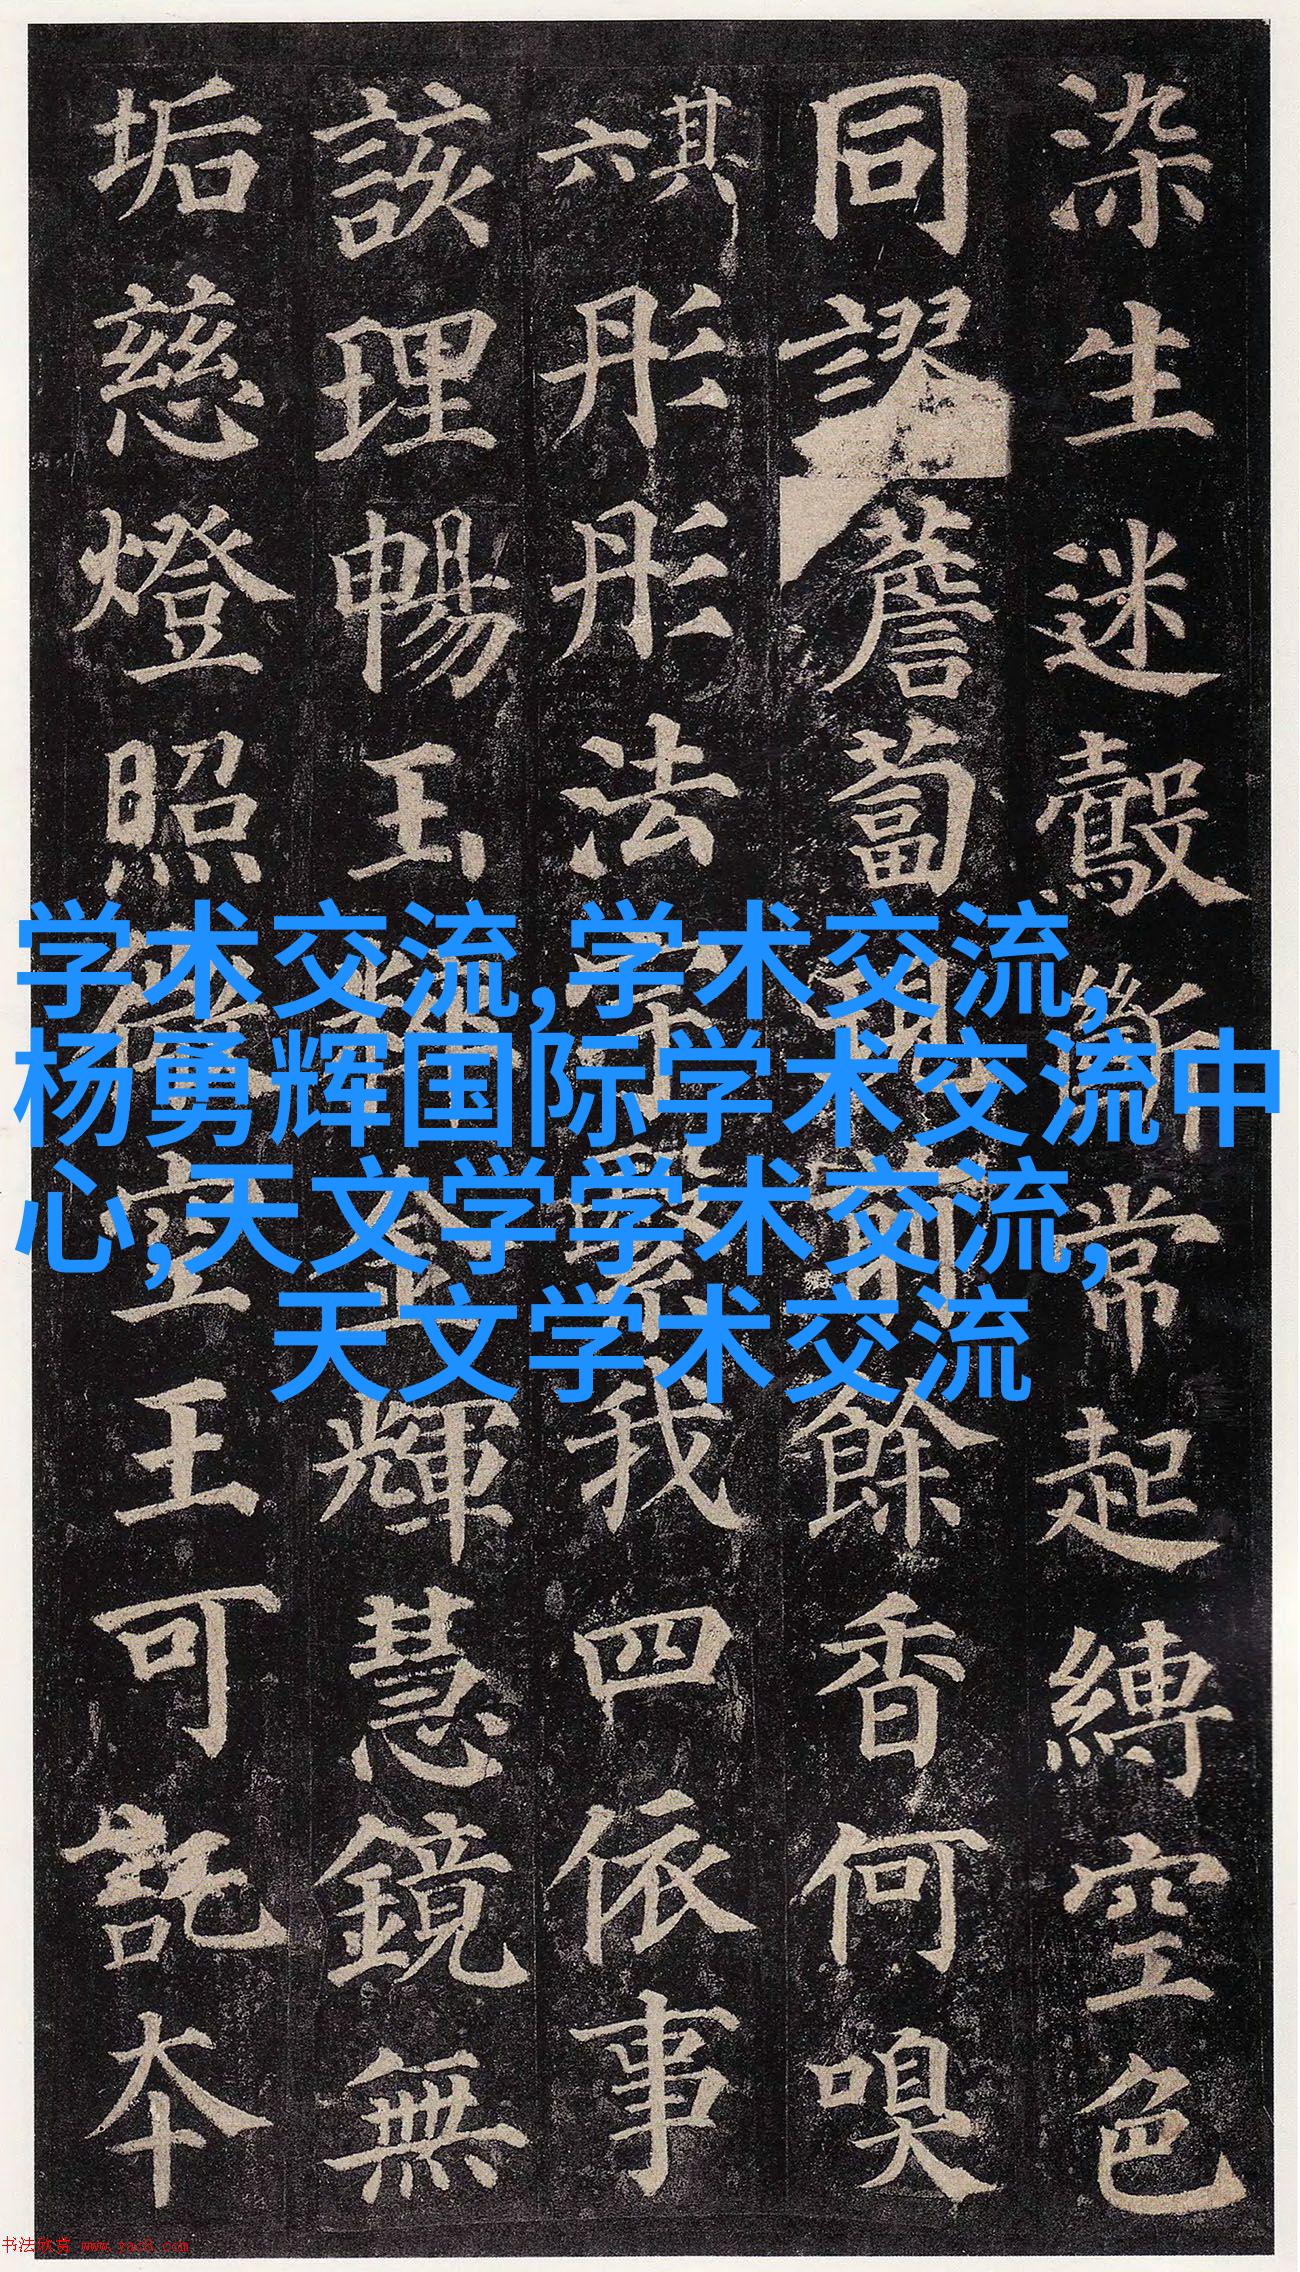 染生迷鷇斷常起縛空色
同謬薝蔔現前餘香何嗅
其六彤彤法宇繄我四依事
該理暢玉粹金輝慧鏡無
垢慈燈照微空王可託本
学术交流,学术交流,
杨勇辉国际学术交流中
心,天文学学术交流,
天文学术交流
书法欣赏 www.yac8.com